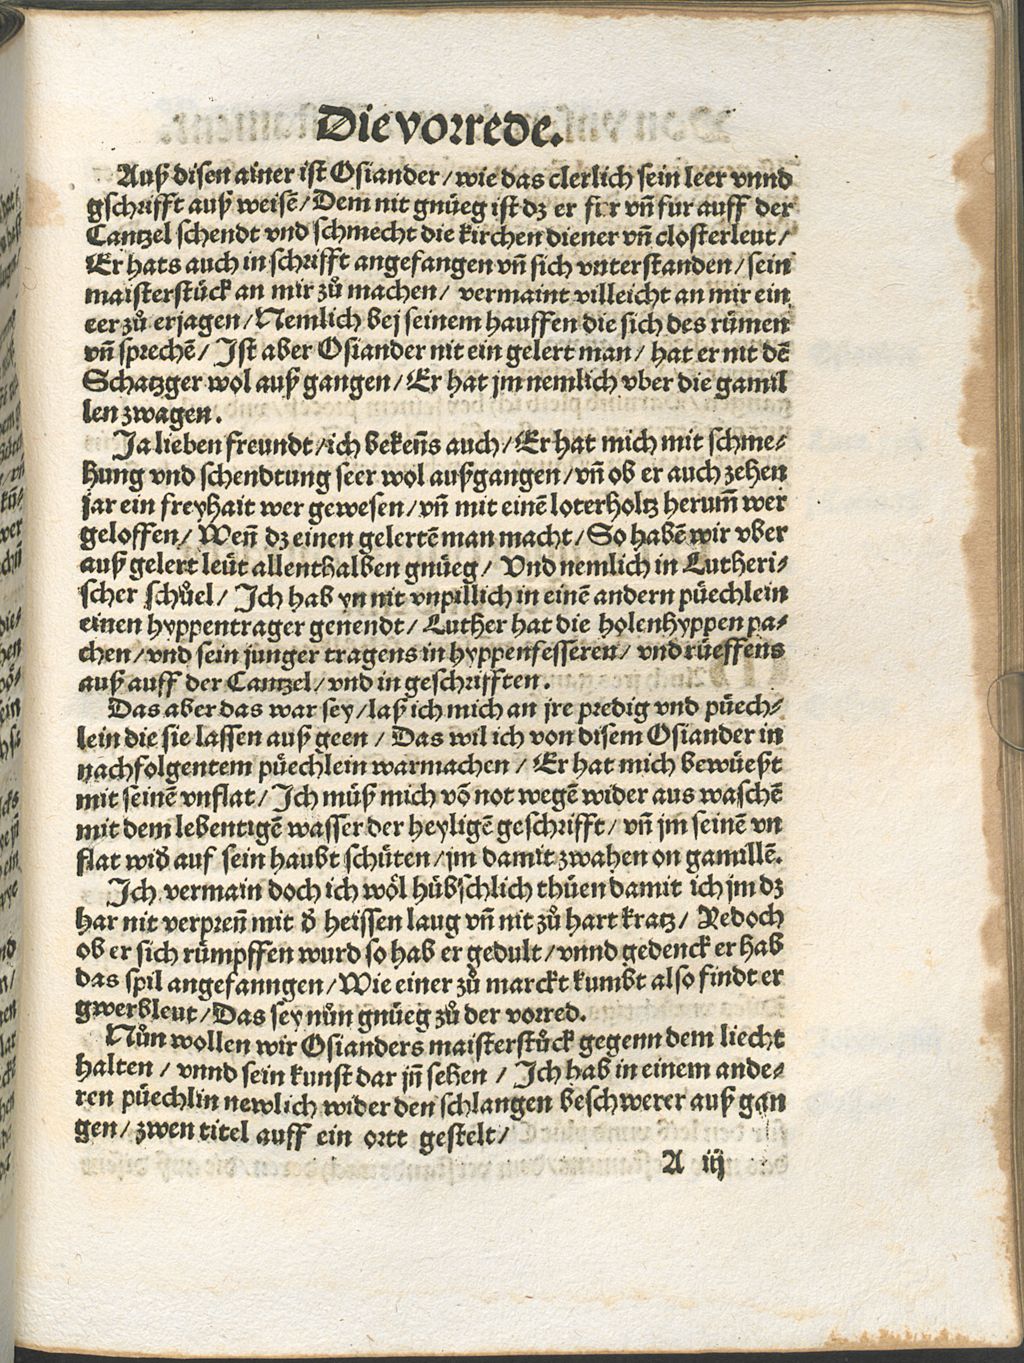 Die vorrede.
Auß disen ainer ist Osiander / wie das clerlich sein leer vnnd
gschrifft auß weisē / Dem nit gnüeg ist dz er für vñ für auff der
Cantzel schendt vnd schmecht die kirchen diener vñ closterleut /
Er hats auch in schrifft angefangen vñ sich vnterstanden / sein
maisterstück an mir zů machen / vermaint villeicht an mir ein
eer zů erjagen / Nemlich bej seinem hauffen die sich des rümen
vñ sprechē / Ist aber Osiander nit ein gelert man / hat er nit dē
Schatzger wol auß gangen / Er hat jm nemlich vber die gamil
len zwagen.
Ja lieben freundt / ich bekeñs auch / Er hat mich mit schme⸗
hung vnd schendtung seer wol außgangen / vñ ob er auch zehen
jar ein freyhait wer gewesen / vñ mit einē loterholtz herum̃ wer
geloffen / Weñ dz einen gelertē man macht / So habē wir vber
auß gelert leüt allenthalben gnüeg / Vnd nemlich in Lutheri⸗
scher schůel / Ich hab yn nit vnpillich in einē andern püechlein
einen hyppentrager genendt / Luther hat die holenhyppen pa⸗
chen / vnd sein junger tragens in hyppenfesseren / vnd rüeffens
auß auff der Cantzel / vnd in geschrifften.
Das aber das war sey / laß ich mich an jre predig vnd püech⸗
lein die sie lassen auß geen / Das wil ich von disem Osiander in
nachfolgentem püechlein warmachen / Er hat mich bewüeßt
mit seinē vnflat / Ich müß mich vō not wegē wider aus waschē
mit dem lebentigē wasser der heyligē geschrifft / vñ jm seinē vn
flat wid̕ auf sein haubt schüten / jm damit zwahen on gamillē.
Ich vermain doch ich wöl hübschlich thüen damit ich jm dz
har nit verpreñ mit d̕ heissen laug vñ nit zů hart kratz / Yedoch
ob er sich rümpffen wurd so hab er gedult / vnnd gedenck er hab
das spil angefanngen / Wie einer zů marckt kumbt also findt er
gwerbleut / Das sey nůn gnüeg zů der vorred.
Nůn wollen wir Osianders maisterstůck gegenn dem liecht
halten / vnnd sein kunst dar jñ sehen / Ich hab in einem ande⸗
ren püechlin newlich wider den schlangen beschwerer auß gan
gen / zwen titel auff ein ortt gestelt /
A iij